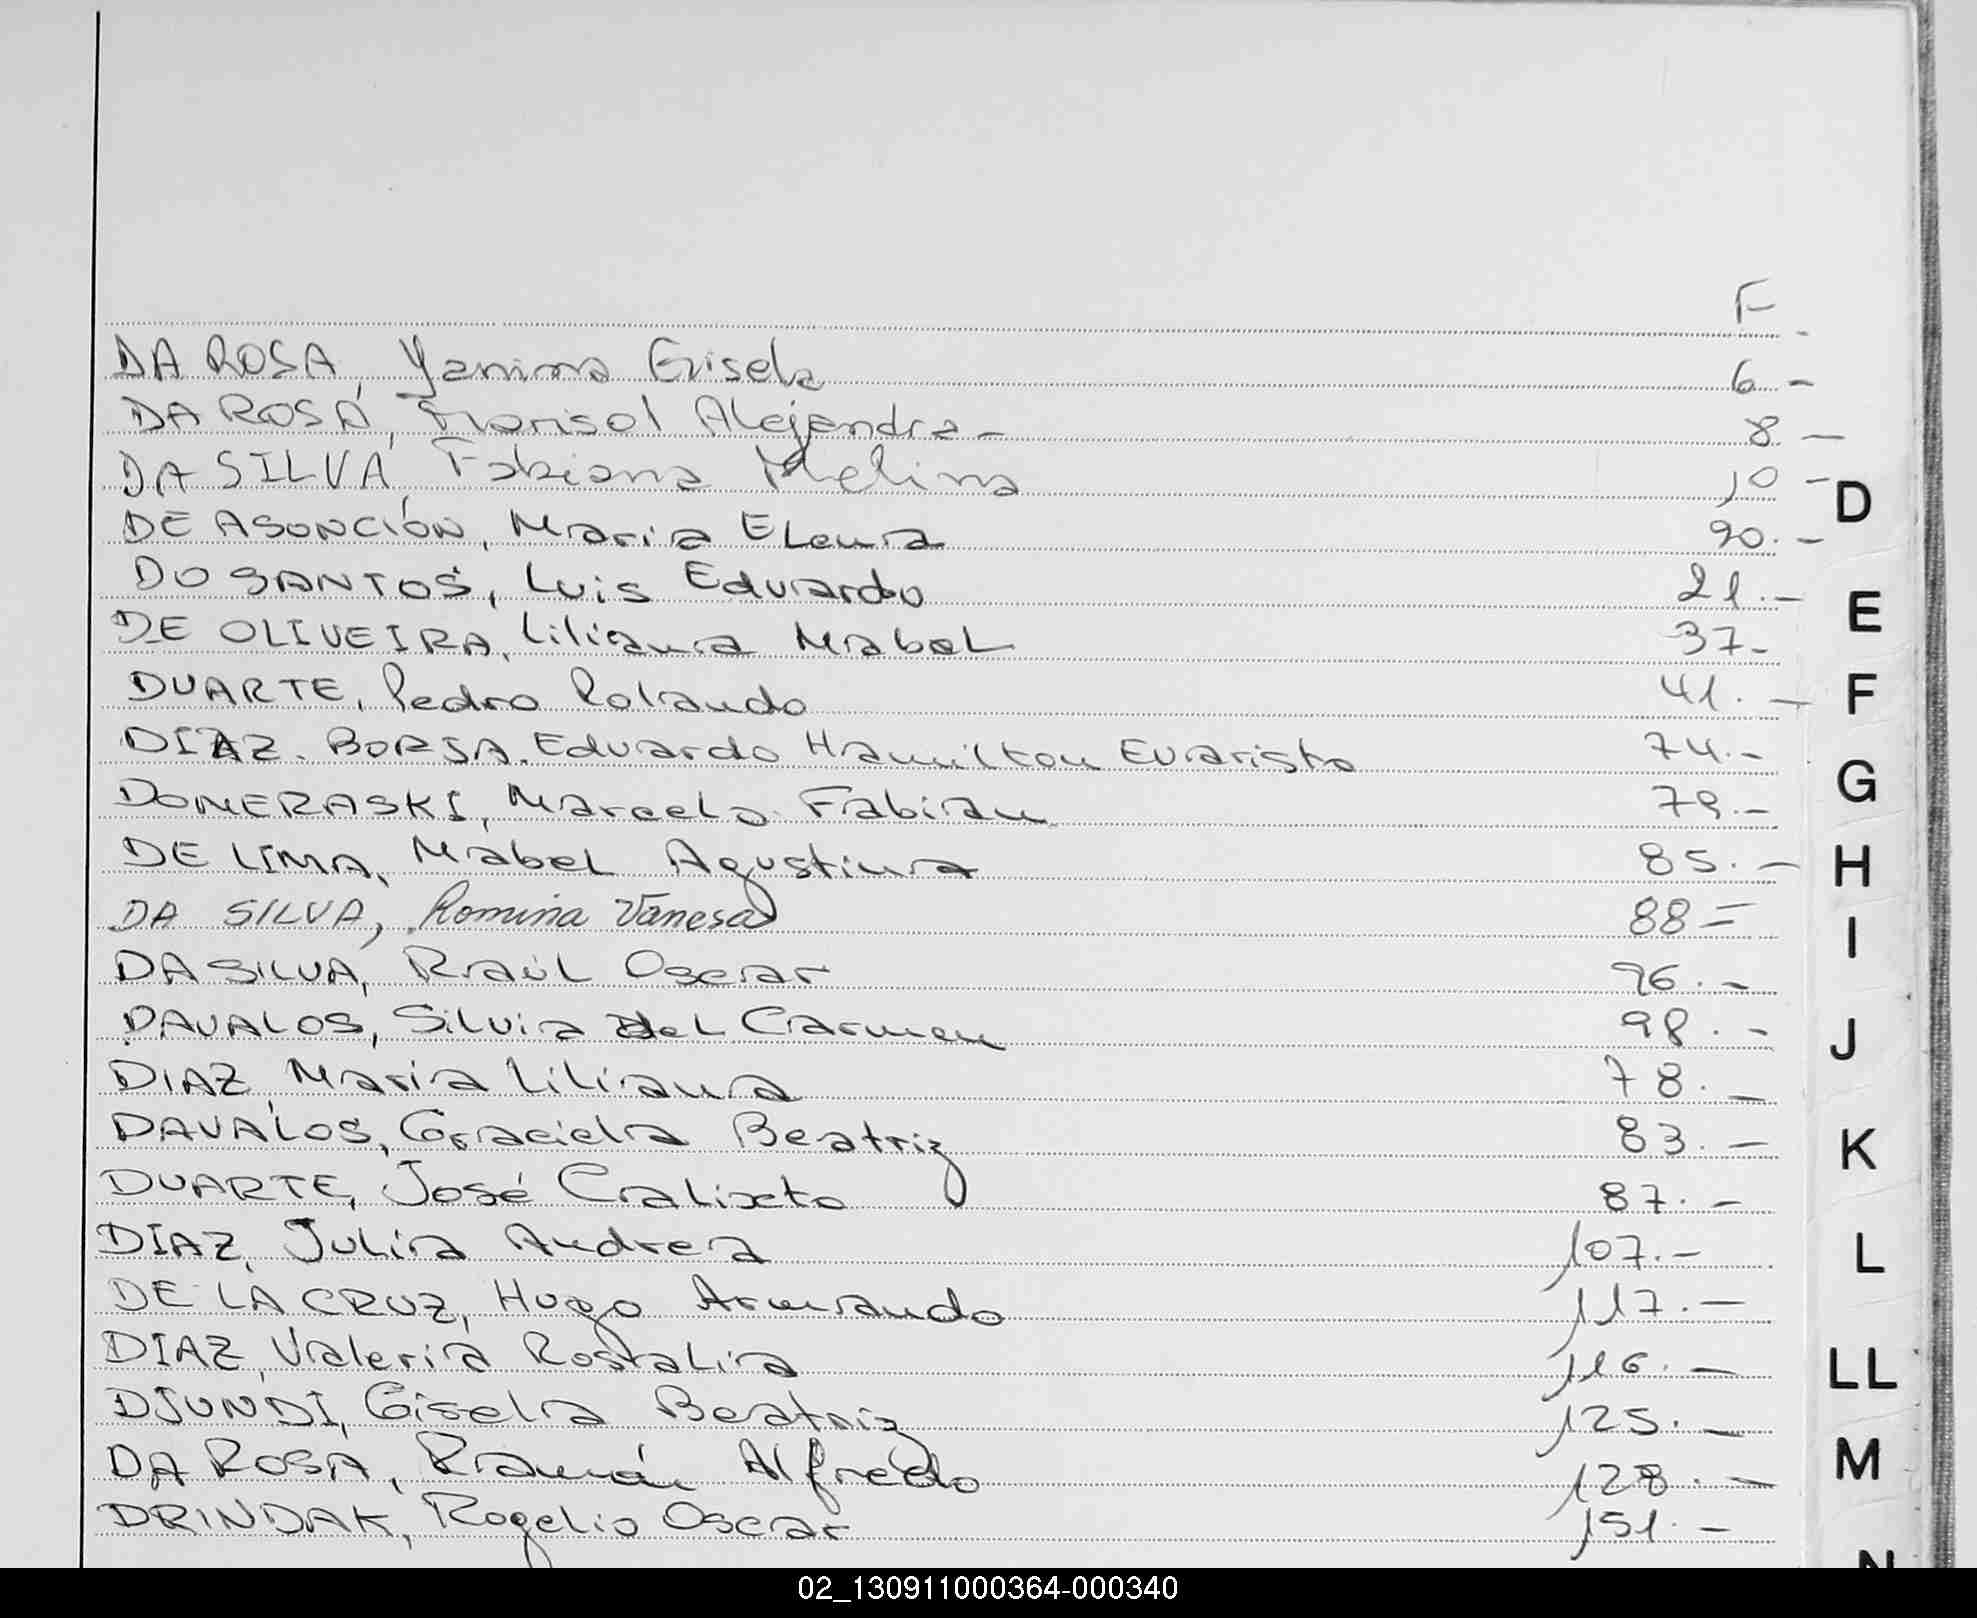 F
DA ROSA, Yanina Gisela 6 -
DA ROSA, Marisol Alejandra - 8 -
DA SILVA, Fabiana Melina 10 -
DE ASUNCIÓN, Maria Elena 90. -
DO SANTOS, Luis Eduardo 21. -
DE OLIVEIRA, Liliana Mabel 37 -
DUARTE, Pedro Rolando 41. -
DIAZ. BORJA, Eduardo Hamilton Evaristo 74. -
DOMERASKI, Marcelo Fabian 79. -
DE LIMA, Mabel Agustina 85. -
DA SILVA, Romina Vanesa 88 =
DA SILVA, Raúl Oscar 96. -
DAVALOS, Silvia del Carmen 98. -
DIAZ, Maria Liliana 78. -
DAVALOS, Graciela Beatriz 83. -
DUARTE, José Calixto 87. -
DIAZ, Julia Andrea 107. -
DE LA CRUZ, Hugo Armando 117. -
DIAZ, Valeria Rosalia 116. -
DJUNDI, Gisela Beatriz 125. -
DA ROSA, Ramón Alfredo 128. -
DRINDAK, Rogelio Oscar 151. -
D
E
F
G
H
I
J
K
L
LL
M
N
02_130911000364-000340